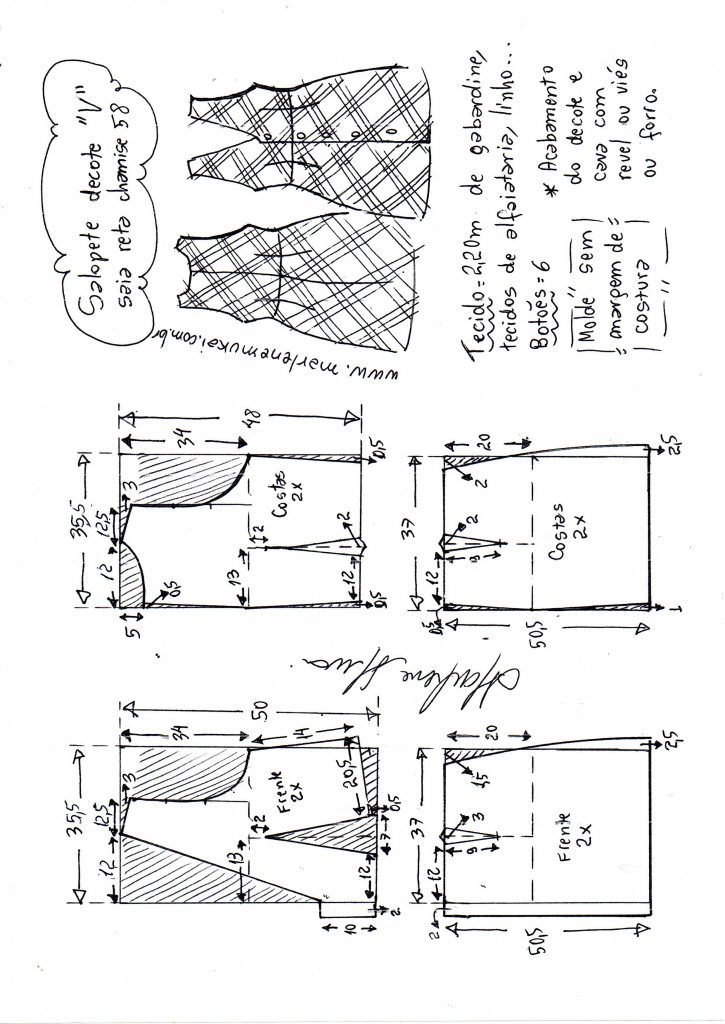 Salopete decote "V"
saia reta chamise 58
www.marlenemukai.com.br
Tecido = 2,20m de gabardine,
tecidos de alfaiataria, linho...
Botões = 6
* Acabamento
do decote e
cava com
revel ou viés
ou forro.
"Molde sem
margem de
costura"
50
34
14
35,5
12,5
3
12
Frente
2x
2
13
20,5
0,5
7
12
10
2
48
34
35,5
12,5
3
12
5
0,5
Costas
2x
2
13
2
12
0,5
0,5
37
20
1,5
3
9
12
2
Frente
2x
50,5
2,5
37
20
2
2
9
12
0,5
Costas
2x
50,5
1
2,5